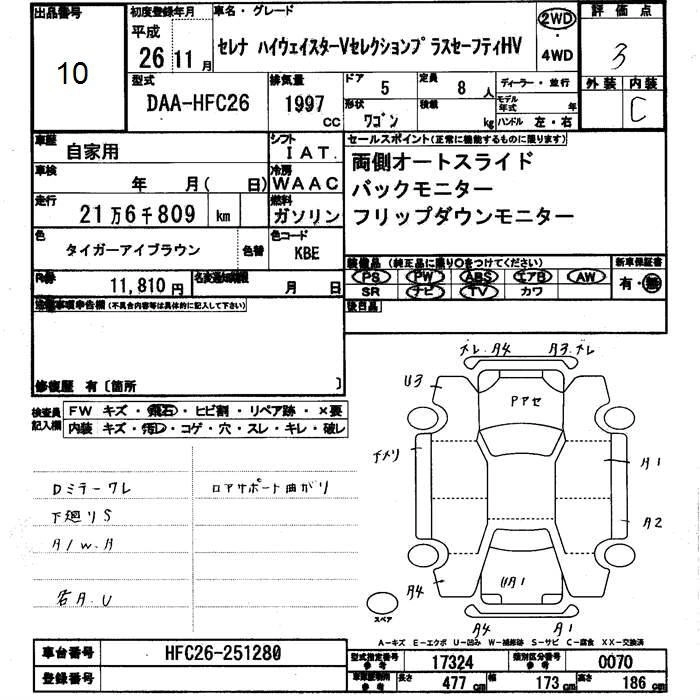 出品番号 初度登録年月 車名・グレード 2WD 評価点
10 平成 26 11月 セレナ ハイウェイスターVセレクションプ ラスセーフティHV 4WD 3
型式 排気量 ドア 定員 ディーラー・並行 外装 内装
DAA-HFC26 1997 CC 5 8 人 モデル年式 年 C
形状 ワゴン 積載 kg ハンドル 左・右
車歴 自家用 シフト IAT. セールスポイント(正常に機能するものに限ります)
車検 年 月( 日) 冷房 WAAC 両側オートスライド
走行 21万6千809 km 燃料 ガソリン バックモニター
フリップダウンモニター
色 タイガーアイブラウン 色替 色コード KBE
装備品 (純正品に限り○をつけてください) 新車保証書
R券 11,810 円 名変通知期限 月 日 PS PW ABS エアB AW 有・無
SR ナビ TV カワ
注意事項申告欄(不具合内容等は具体的に記入して下さい) 後日品
修復歴 有〔箇所 〕
検査員記入欄 FW キズ・飛石・ヒビ割・リペア跡・×要
内装 キズ・汚レ・コゲ・穴・スレ・キレ・破レ
ズレ A4 A3 ズレ
U3
Pアセ
A1
A2
UA1
A4
A4 A1
スペア
Dミラーワレ ロアサポート曲がり
下廻りS
A/W.A
各A.U
A-キズ E-エクボ U-凹み W-補修跡 S-サビ C-腐食 XX-交換済
車台番号 HFC26-251280 型式指定番号 参考 17324 類別区分番号 参考 0070
登録番号 参考 長さ 477 cm 幅 173 cm 高さ 186 cm